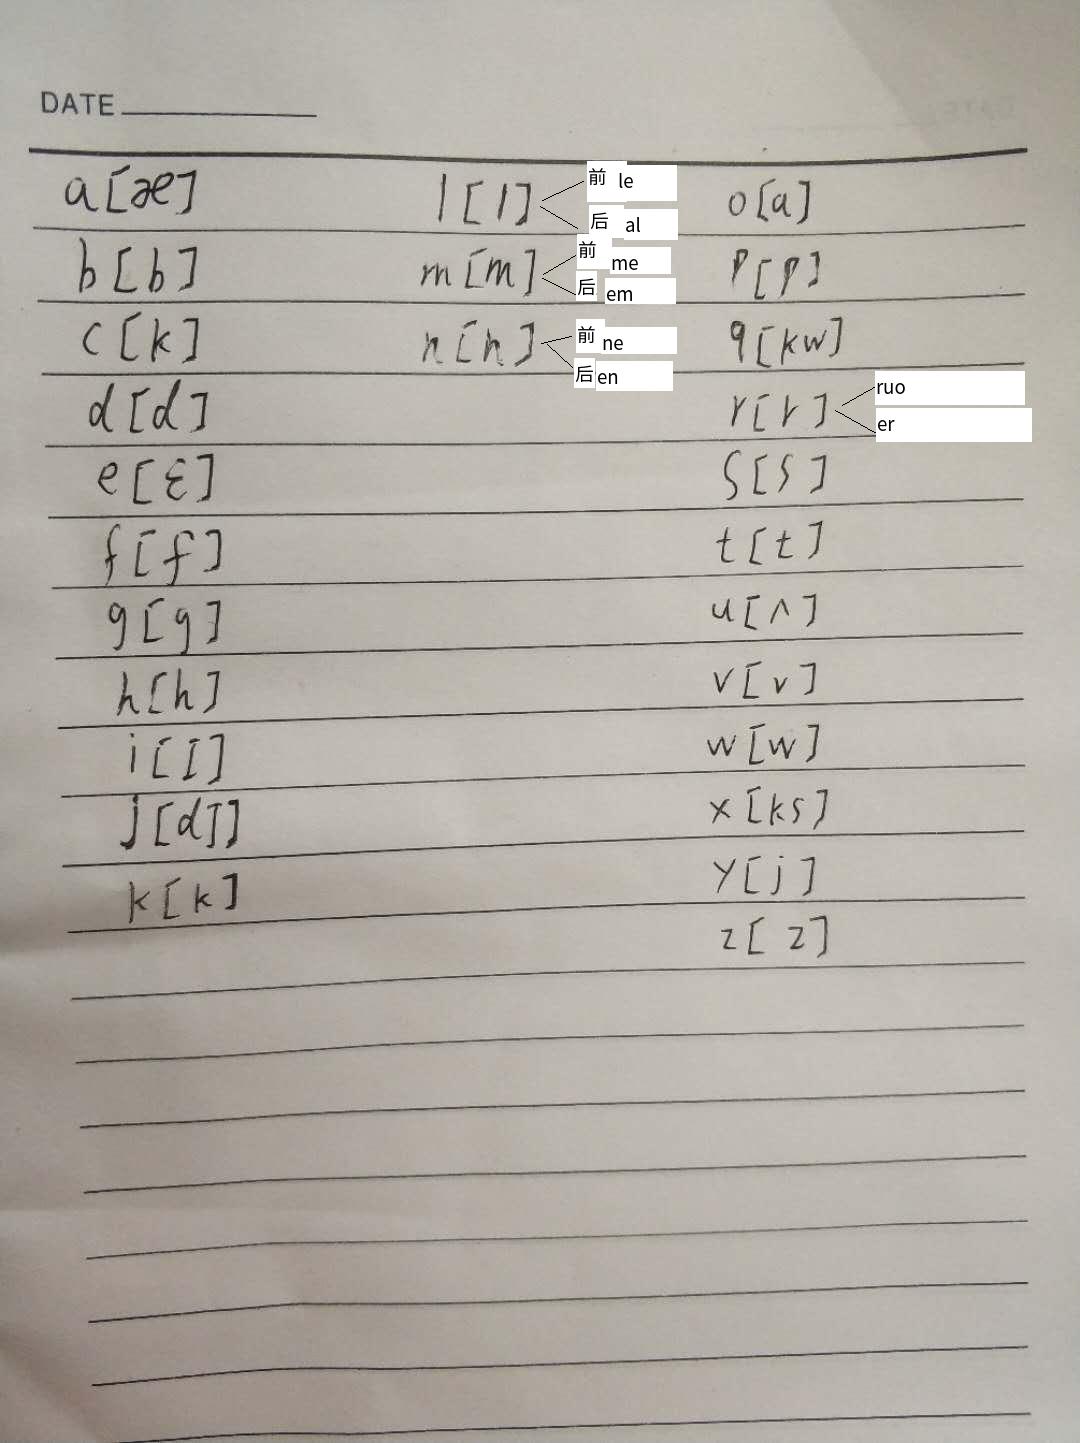 DATE
a [æ]
b [b]
c [k]
d [d]
e [ε]
f [f]
g [g]
h [h]
i [I]
j [dJ]
k [k]
l [l]
前 le
后 al
m [m]
前 me
后 em
n [n]
前 ne
后 en
o [a]
p [p]
q [kw]
r [r]
ruo
er
s [s]
t [t]
u [ʌ]
v [v]
w [w]
x [ks]
y [j]
z [z]